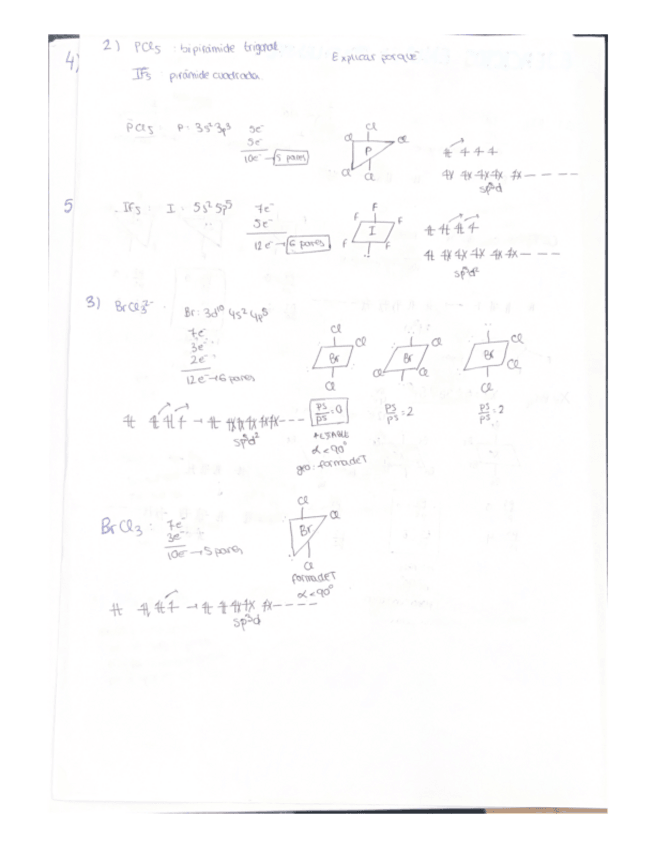 4)
2) PCl5 : bipirámide trigonal. Explicar porque
IF5 pirámide cuadrada.
PCl5 : P: 3s² 3p³ 5e⁻
5e⁻
10e⁻ → 5 pares
Cl
Cl Cl
P
Cl Cl
sp³d
5
IF5 : I: 5s² 5p⁵ 7e⁻
5e⁻
12e⁻ → 6 pares
F
F F
I
F F
sp³d²
3) BrCl3²⁻ . Br: 3d¹⁰ 4s² 4p⁵
7e⁻
3e⁻
2e⁻
12e⁻ → 6 pares
Cl Cl Br Cl
Cl Br Cl Cl
Cl Br Cl Cl
sp³d²
ps/ps = 0 ps/ps = 2 ps/ps = 2
α < 90°
geo: forma de T
BrCl3 : 7e⁻
3e⁻
10e⁻ → 5 pares
Cl
Cl
Br
Cl
forma de T
α < 90°
sp³d